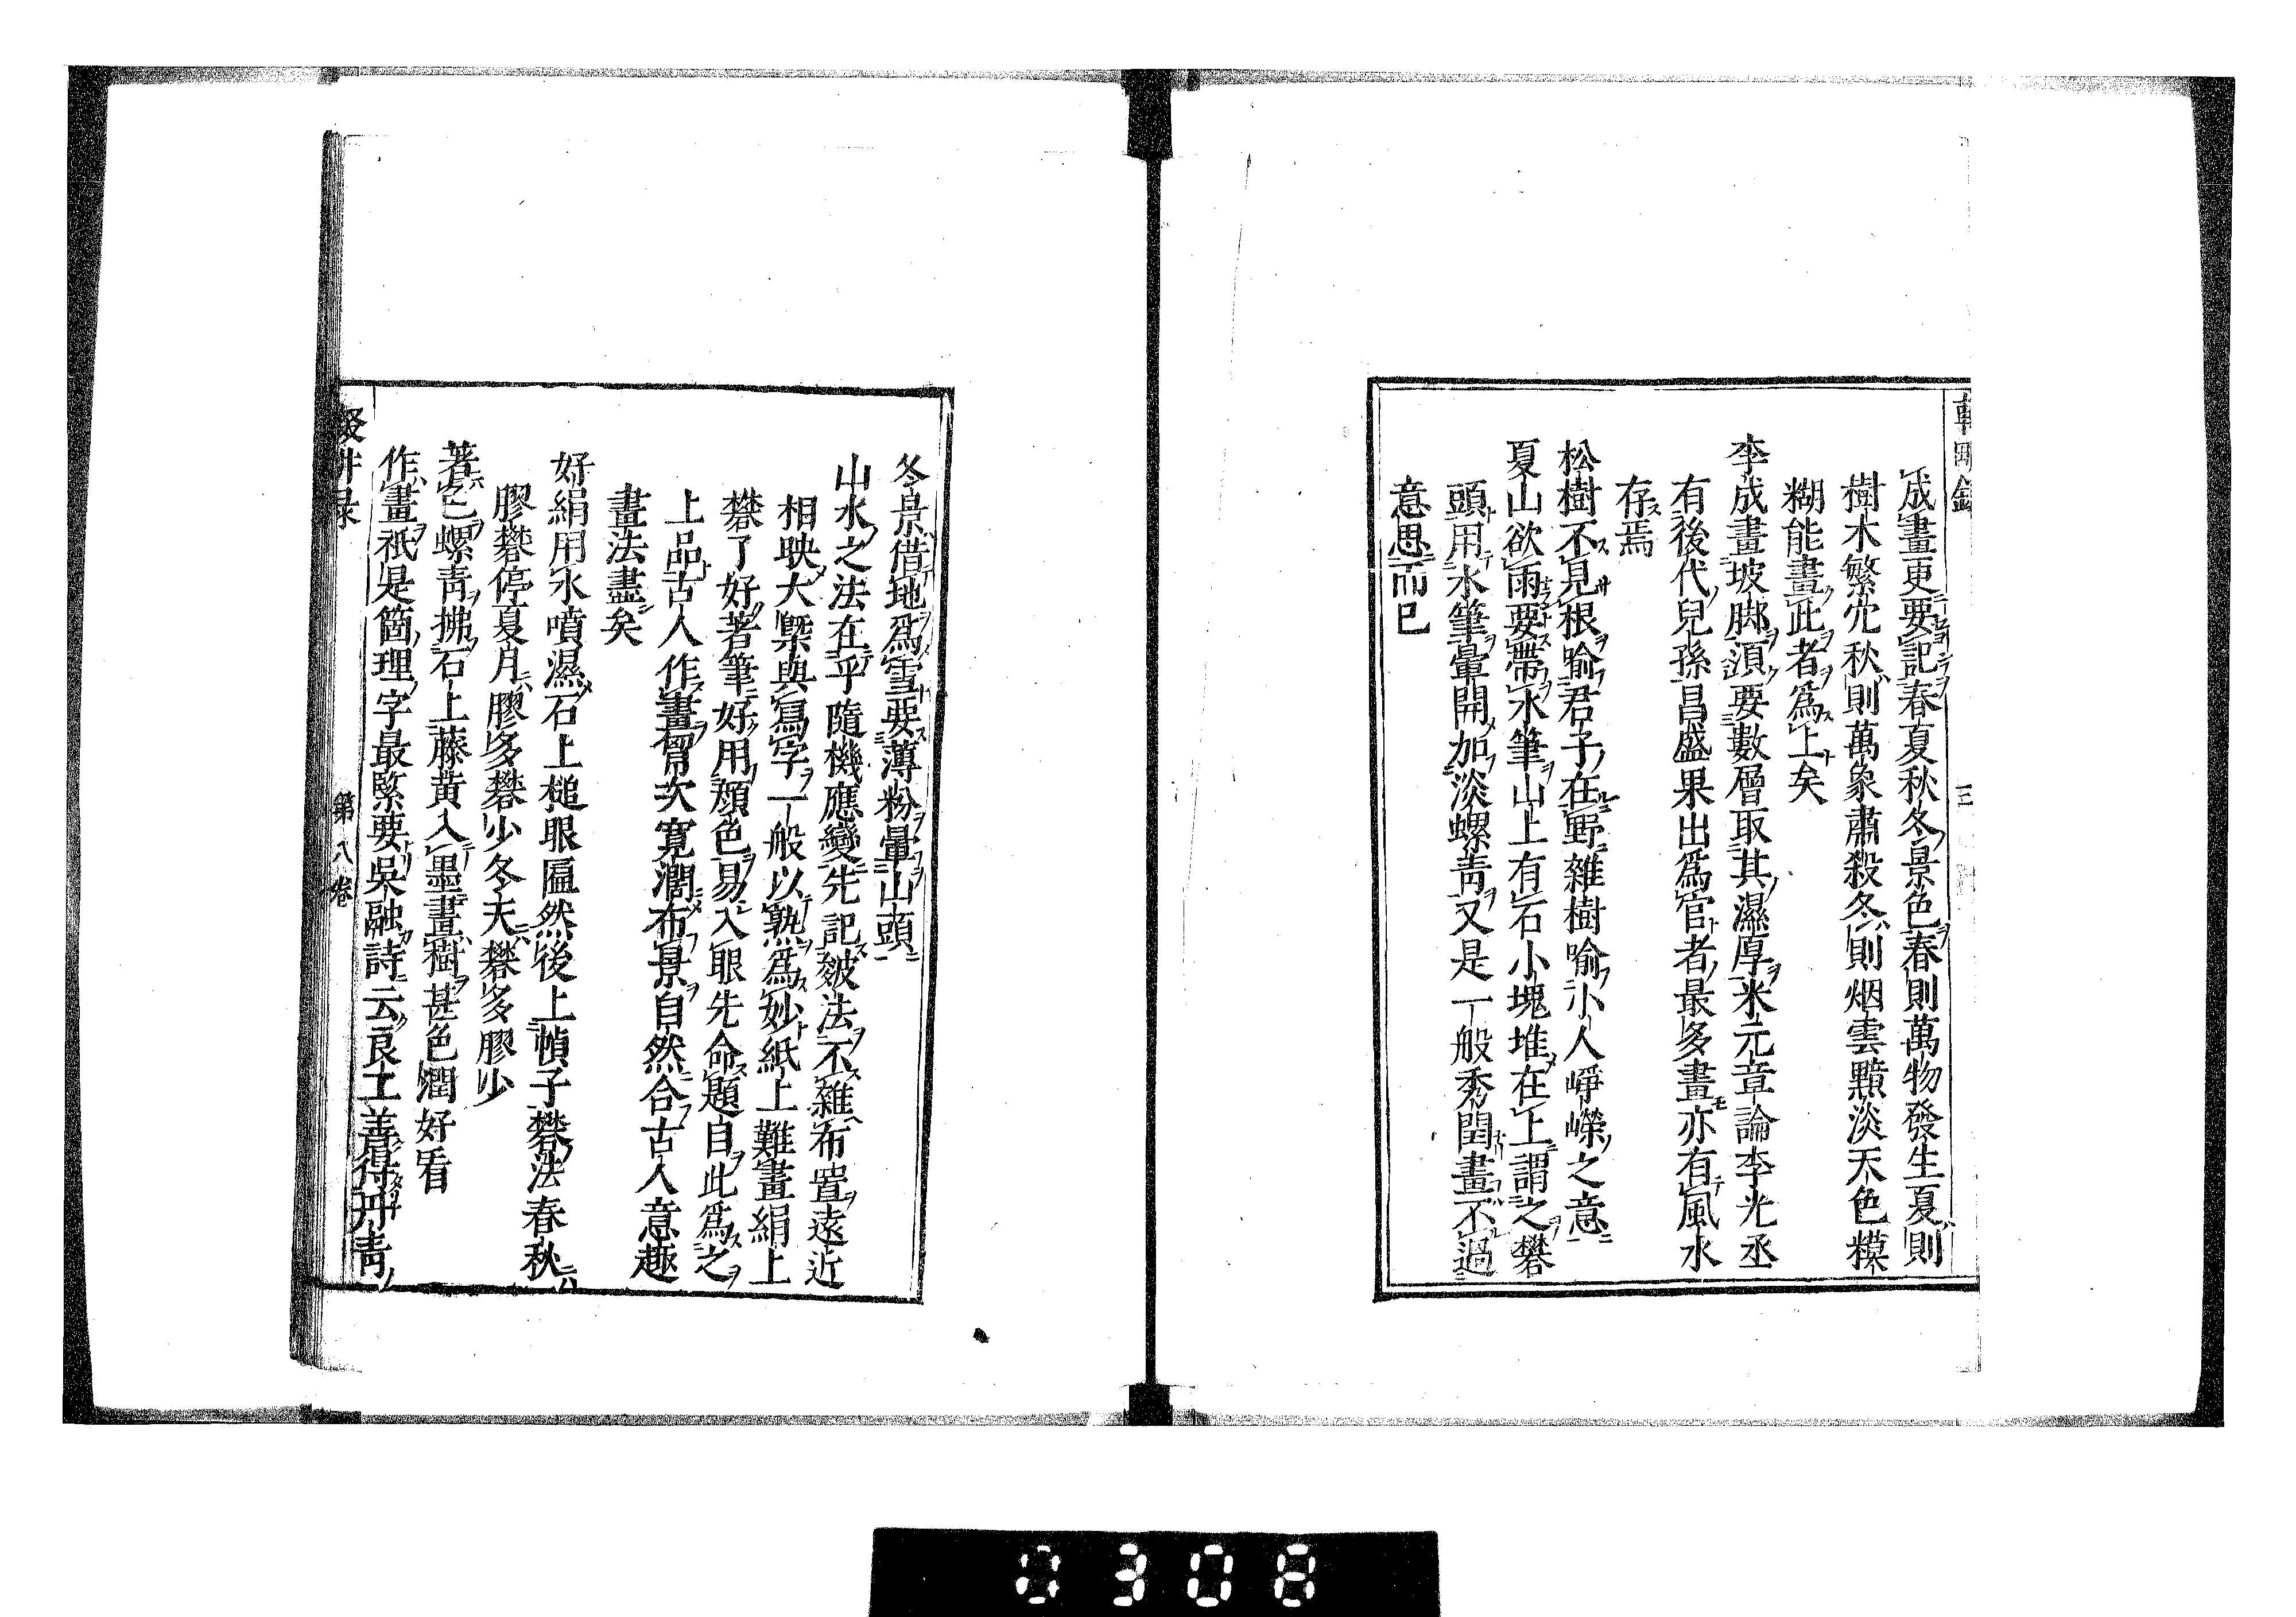 成畫更要記春夏秋冬景色春則萬物發生夏則
樹木繁冗秋則萬象肅殺冬則烟雲黯淡天色糢
糊能畫此者爲上矣
李成畫坡脚須要數層取其濕厚米元章論李光丞
有後代兒孫昌盛果出爲官者最多畫亦有風水
存焉
松樹不見根喻君子在野雜樹喻小人崢嶸之意
夏山欲雨要帶水筆山上有石小塊堆在上謂之礬
頭用水筆暈開加淡螺青又是一般秀閏畫不過
意思而已
冬景借地爲雪要薄粉暈山頭
山水之法在乎隨機應變先記皴法不雜布置遠近
相映大槩與寫字一般以熟爲妙紙上難畫絹上
礬了好著筆好用顔色易入眼先命題自此爲之
上品古人作畫胷次寛濶布景自然合古人意趣
畫法盡矣
好絹用水噴濕石上槌眼匾然後上幀子礬法春秋
膠礬停夏月膠多礬少冬天礬多膠少
著色螺青拂石上藤黄入墨畫樹甚色潤好看
作畫祇是箇理字最緊要吳融詩云良工善得丹青
輟耕录
第八卷